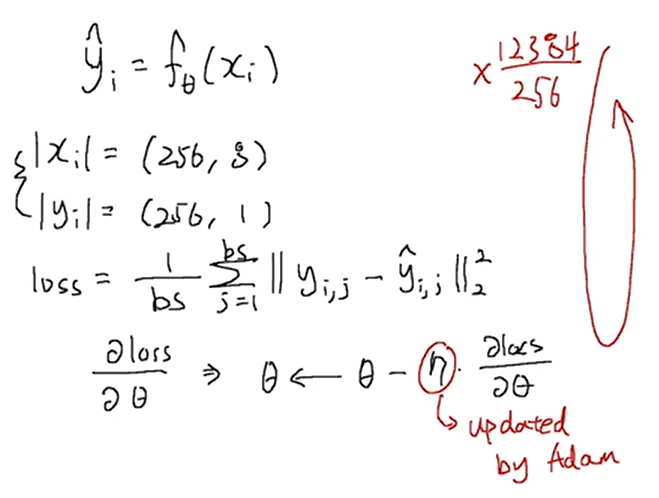 ŷᵢ = f̂_θ(xᵢ)
× 12384/256
|xᵢ| = (256, 8)
|yᵢ| = (256, 1)
loss = 1/bs Σ_{j=1}^{bs} ‖ y_{i,j} − ŷ_{i,j} ‖₂²
∂loss/∂θ ⇒ θ ← θ − η · ∂loss/∂θ
↳ updated
by Adam